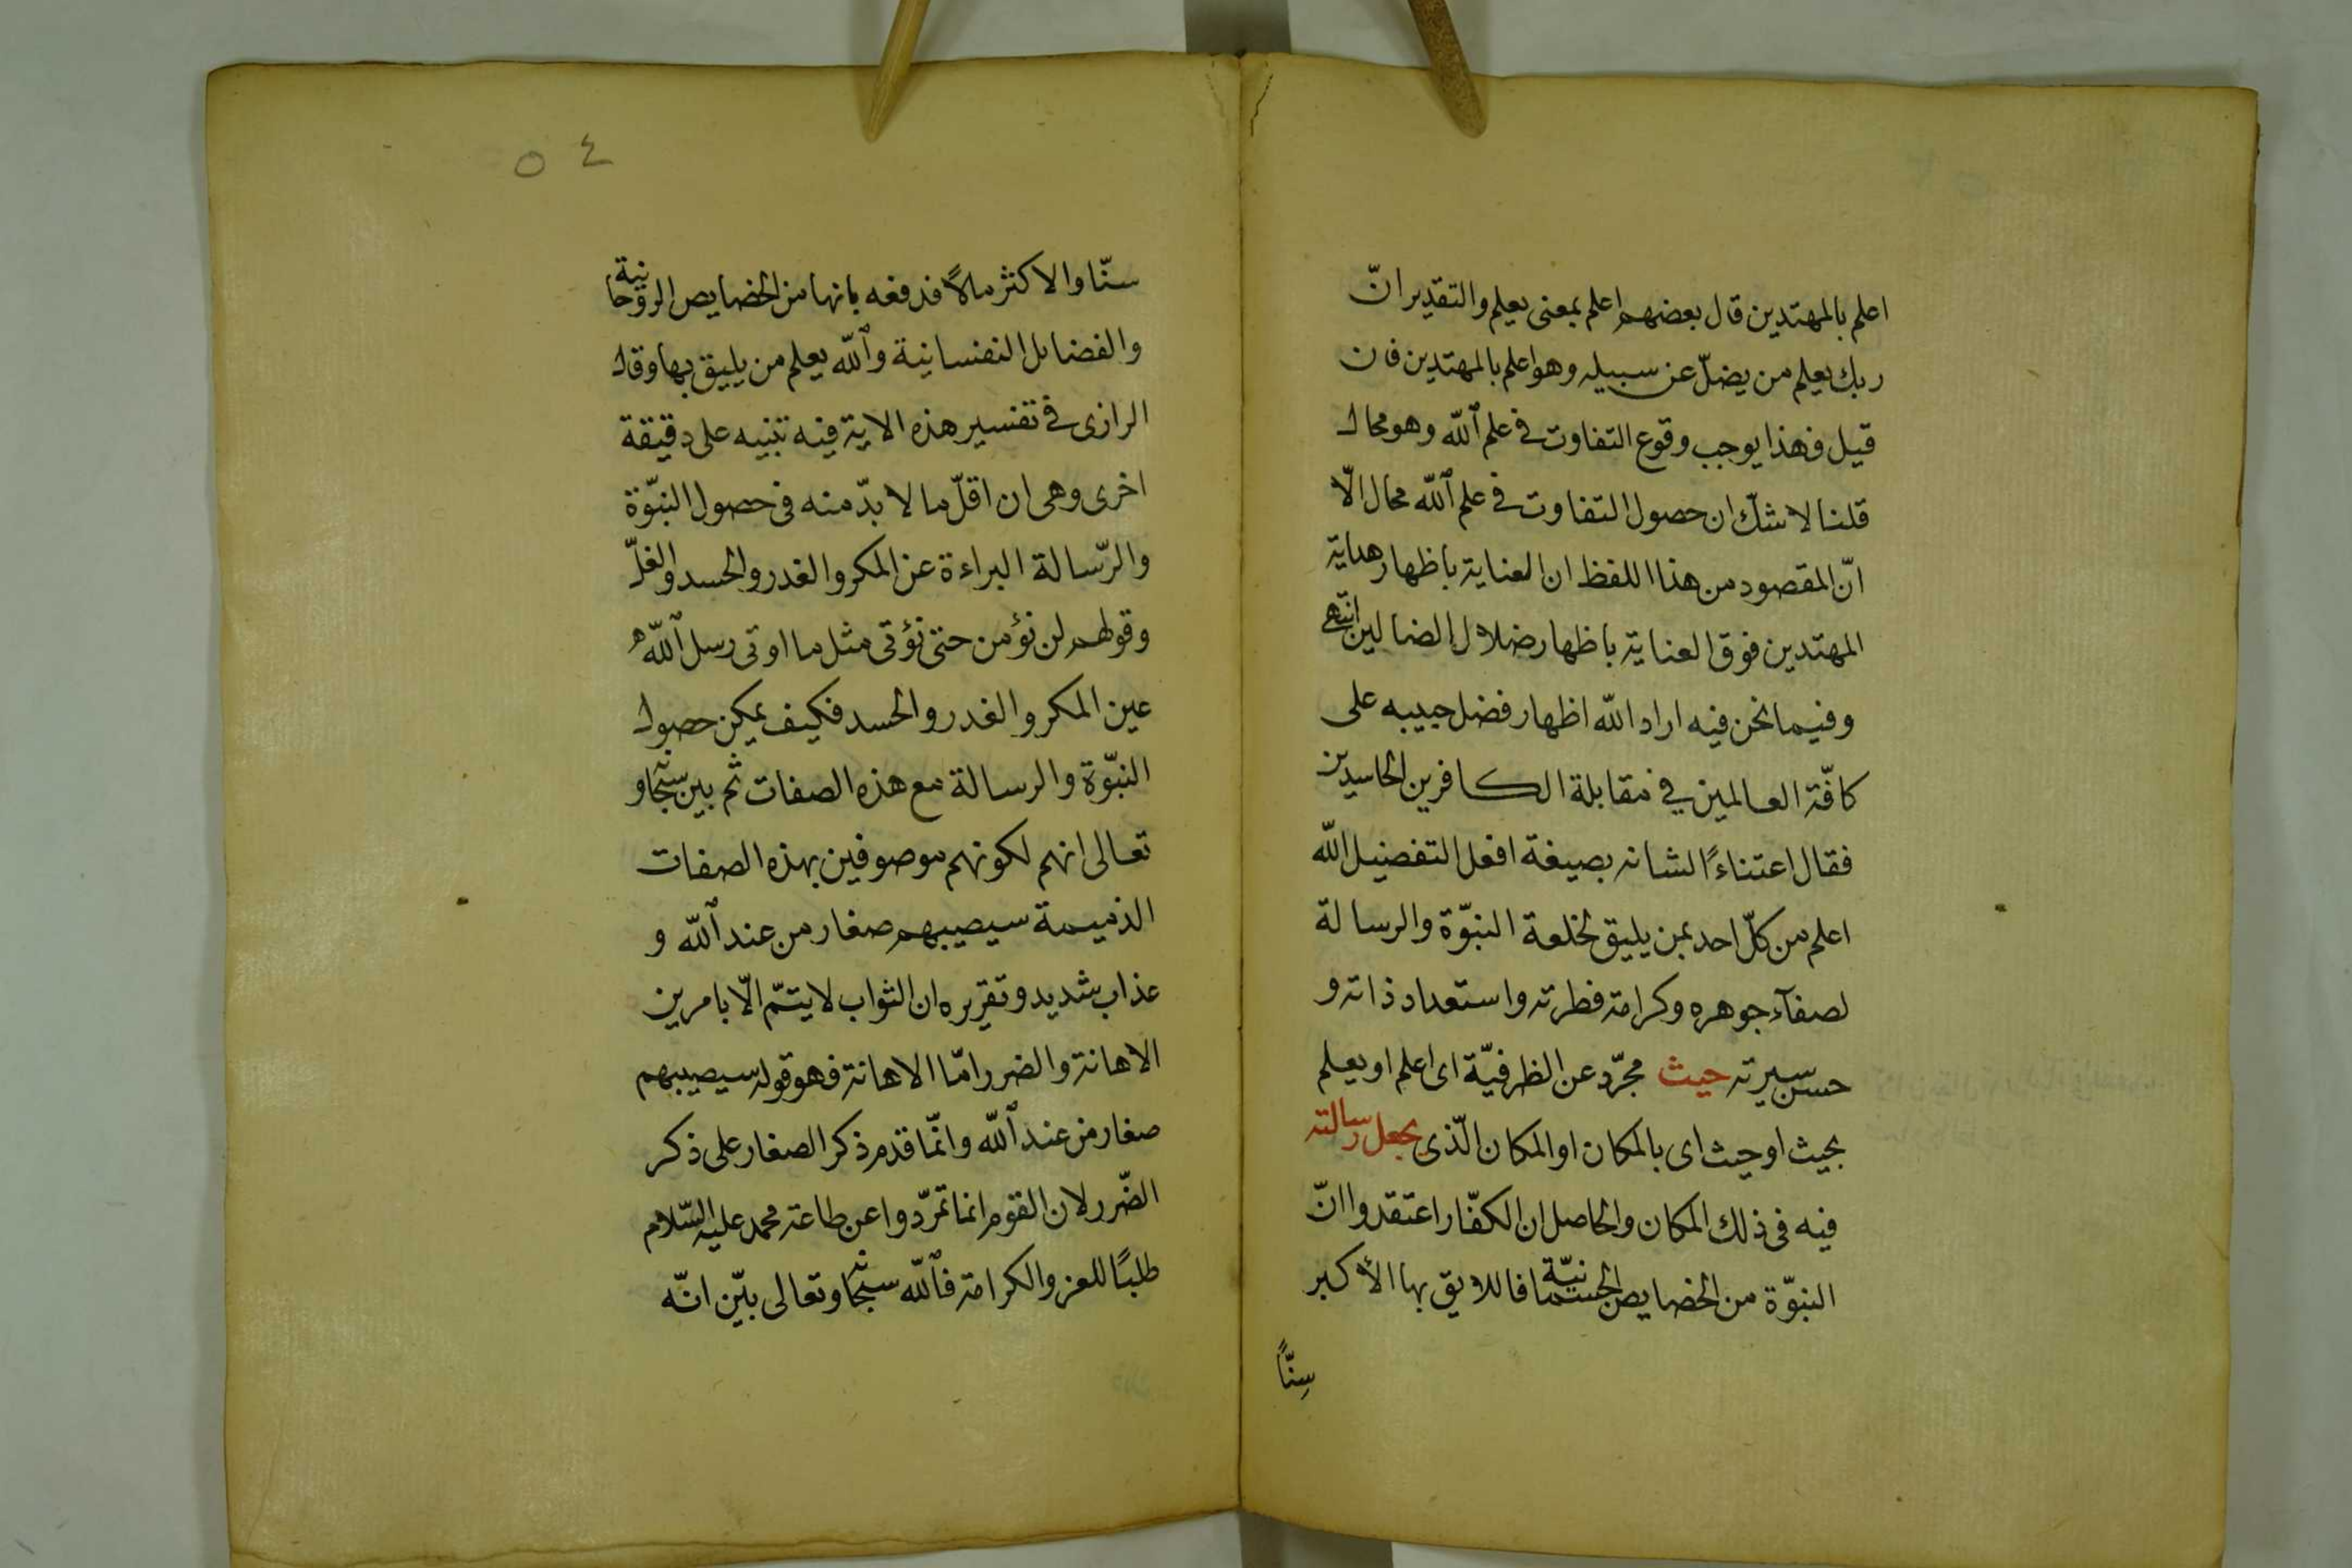 اعلم بالمهتدين قال بعضهم اعلم بمعنى يعلم والتقدير انّ
ربك يعلم من يضلّ عن سبيله وهو اعلم بالمهتدين فان
قيل فهذا يوجب وقوع التفاوت في علم الله وهو محال
قلنا لا شكّ ان حصول التفاوت في علم الله محال الّا
انّ المقصود من هذا اللفظ ان العناية باظهار هداية
المهتدين فوق العناية باظهار ضلال الضالين انتهى
وفيما نحن فيه اراد الله اظهار فضل حبيبه على
كافّة العالمين في مقابلة الكافرين الحاسدين
فقال اعتناءً لشانه بصيغة افعل التفضيل الله
اعلم من كلّ احد بمن يليق لخلعة النبّوة والرسالة
لصفآء جوهره وكرامة فطرته واستعداد ذاته و
حسن سيرته حيث مجرّد عن الظرفيّة اى اعلم او يعلم
بحيث او حيث اى بالمكان او المكان الّذى يجعل رسالته
فيه فى ذلك المكان والحاصل ان الكفّار اعتقدوا انّ
النبوّة من الخصايص الجسمانيّة فاللايق بها الأكبر
سِنّاً
٥٤
سنّا والاكثر مالاً فدفعه بانها من الخصايص الروحانية
والفضايل النفسانية والله يعلم من يليق بها وقال
الرازى في تفسير هذه الاية فيه تنبيه على دقيقة
اخرى وهى ان اقلّ ما لا بدّ منه فى حصول النبّوة
والرّسالة البراءة عن المكر والغدر والحسد والغلّ
وقولهم لن نؤمن حتى نؤتى مثل ما اوتى رسل الله
عين المكر والغدر والحسد فكيف يمكن حصول
النبّوة والرسالة مع هذه الصفات ثم بين سبحانه و
تعالى انهم لكونهم موصوفين بهذه الصفات
الذميمة سيصيبهم صغار من عند الله و
عذاب شديد وتقريره ان الثواب لا يتمّ الّا بامرين
الاهانة والضرر امّا الاهانة فهو قوله سيصيبهم
صغار من عند الله وانّما قدم ذكر الصغار على ذكر
الضّرر لان القوم انما تمرّدوا عن طاعة محمد عليه السّلام
طلبًا للعز والكرامة فالله سبحانه وتعالى بيّن انّه